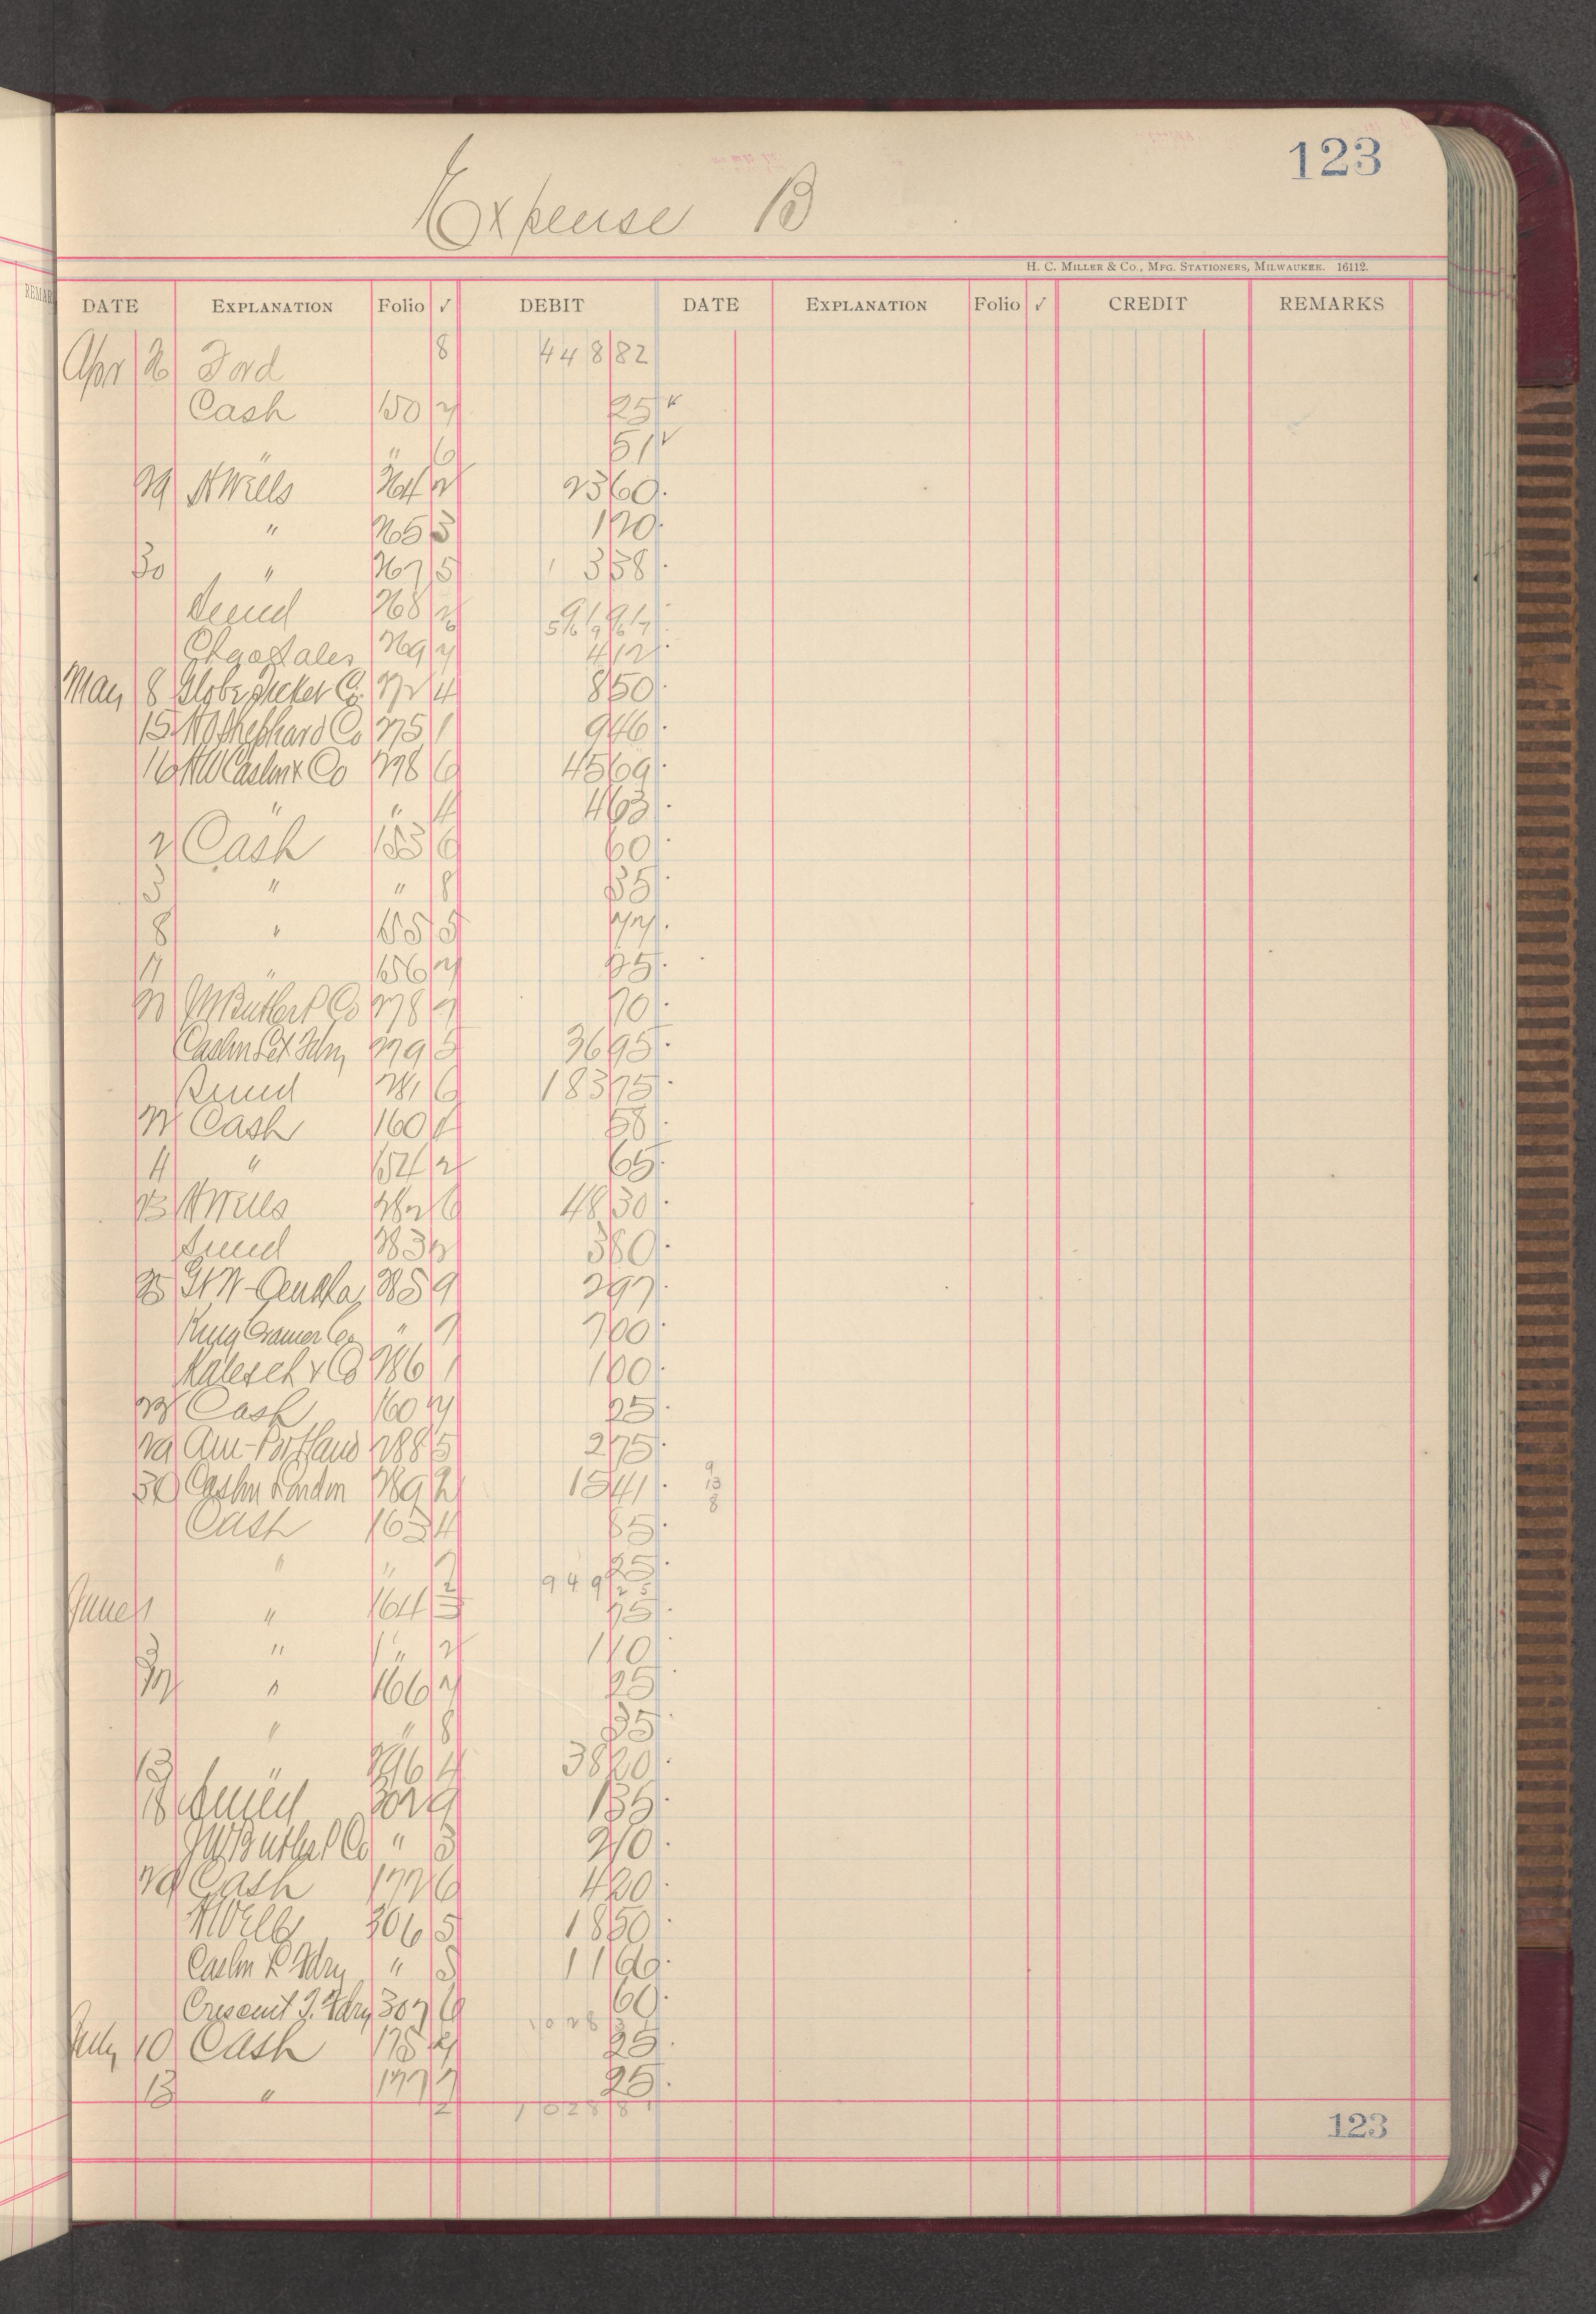 123
Expense B
H. C. MILLER & CO., MFG. STATIONERS, MILWAUKEE. 16112.
DATE EXPLANATION Folio ✓ DEBIT DATE EXPLANATION Folio ✓ CREDIT REMARKS
Apr 26 Ford 8 448 82
Cash 150 7 25 ✓
" " 6 51 ✓
29 H Wells 264 2 23 60
" 265 3 1 20
30 " 267 5 3 38
268
269 7 4 12
May 8 Globe Ticket Co 272 4 8 50
15 H O Shephard Co 275 1 9 46
16 H W Caslon & Co 278 6 45 69
" " 4 4 63
2 Cash 153 6 60
3 " " 8 35
8 " 155 5 77
11 " 156 7 25
J W Butler P Co 278 7 70
279 5 36 95
281 6 183 75
22 Cash 160 58
4 " 154 2 65
23 H Wells 282 6 48 30
283 2 3 80
25 285 9 2 97
King Cramer Co " 7 7 00
286 1 1 00
Cash 160 7 25
29 Am - Portland 288 5 2 75
30 Caslon London 289 2 15 41
9
13
8
Cash 163 4 85
" " 7 25
949 25
June 1 " 164 75
3 " " 2 1 10
" 166 7 25
" " 8 35
13 " 296 4 38 20
18 302 9 1 35
J W Butler P Co " 3 2 10
29 Cash 172 6 4 20
H Wells 306 5 18 50
Caslon L Fdry " 5 11 66
Crescent T. Fdry 307 6 60
July 10 Cash 175 25
13 " 177 7 25
2 1028 81
123